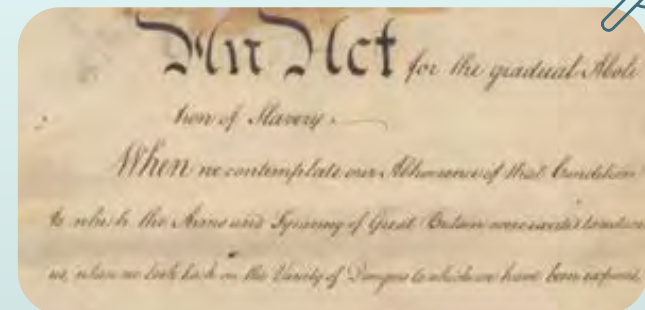 An Act for the gradual Aboli
tion of Slavery.
When we contemplate our Abhorrence of that Condition
to which the Arms and Tyranny of Great Britain were exerted to reduce
us, when we look back on the Variety of Dangers to which we have been exposed,